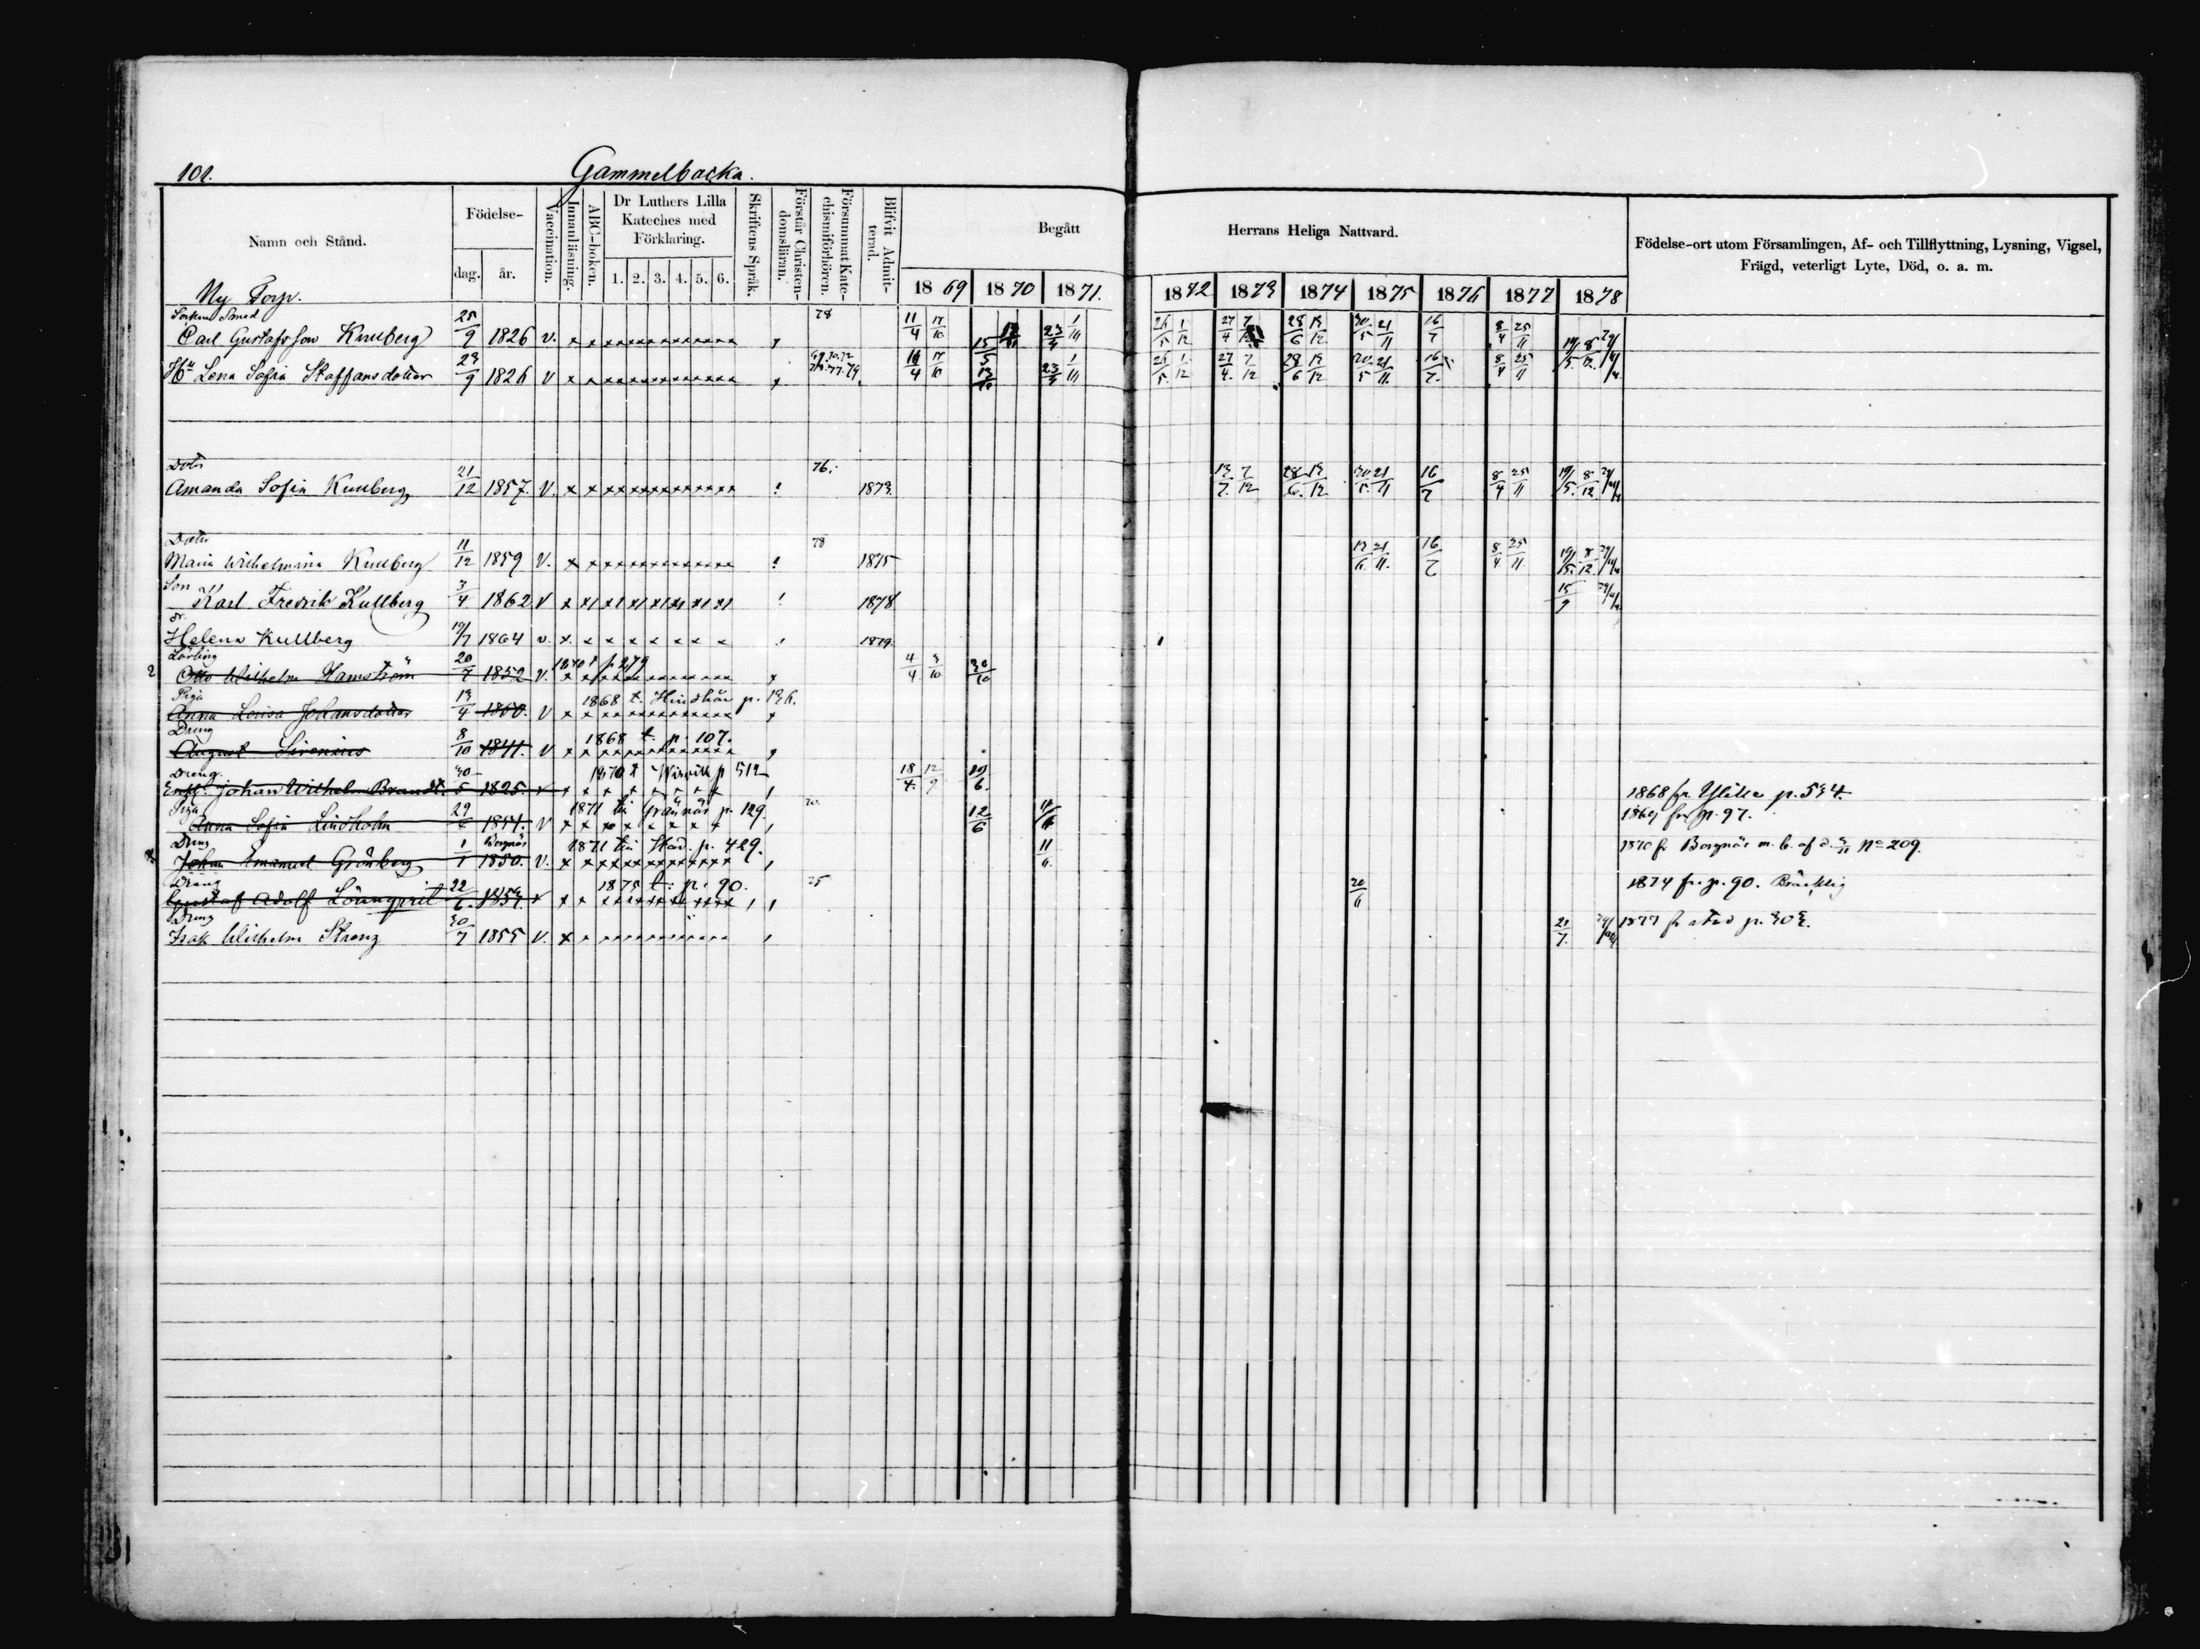 101. Gammelbacka.
Namn och Stånd. Födelse- dag. år. Vaccination. Innanläsning. ABC-boken. Dr Luthers Lilla Kateches med Förklaring. 1. 2. 3. 4. 5. 6. Skriftens Språk. Förstår Christendomsläran. Försummat Katechismiförhören. Blifvit Admitterad. Begått Herrans Heliga Nattvard. 1869 1870 1871. 1872 1873 1874 1875 1876 1877 1878 Födelse-ort utom Församlingen, Af- och Tillflyttning, Lysning, Vigsel, Frägd, veterligt Lyte, Död, o. a. m.
Ny Torp.
Socken Smed 78
Carl Gustafsson Kullberg 25/9 1826 v. 11/4 17/10 23/4 1/11 26/5 1/12 27/4 7/12 28/6 13/12 30/5 21/11 16/7 8/4 25/11 19/5 8/12
Hu Lena Sofia Staffansdotter 23/9 1826 v 17/10 23/4 1/11 26/5 1/12 27/4 7/12 28/6 13/12 30/5 21/11 16/7 8/4 25/11 19/5 8/12
Dotter 76.
Amanda Sofia Kullberg 21/12 1857. V. 1873. 13/7 7/12 28/6 13/12 30/5 21/11 16/7 8/4 25/11 19/5 8/12
Dotter 78
Maria Wilhelmina Kullberg 11/12 1859 V. 1875 13/6 21/11 16/7 8/4 25/11 19/5 8/12
Son
Karl Fredrik Kullberg 7/4 1862 V 1878 15/9
Helena Kullberg 19/7 1864 v. 1879.
Lärling
2 Otto Wilhelm Hamström 20/7 1852 V. p. 279 4/4 3/10 30/10
Piga 1868 t. Hindhår p. 136.
Anna Lovisa Johansdotter 13/4 1850. V
Dreng 1868 t. p. 107.
August Sirenius 8/10 1841. V
Dreng 1870 t p 512
Enkl. Johan Wilhelm Brandt. 30/5 1825. 18/4 12/9 19/6. 1868 fr p. 534.
Piga 1871 till Gränäs p. 129. 70.
Anna Sofia Lindholm 29/6 1851. V 12/6 11/6 1869 fr p. 97.
Dreng Borgnäs 1871 till Stad. p. 429.
Johan Emanuel Grönberg 1/1 1850. V. 11/6 1870 fr Borgnäs m. b. af d. 3/11 No 209.
Dreng 1875 t. p. 90. 75
Gustaf Adolf Lönnqvist 22/6 1853. 20/6 1874 fr. p. 90. Bräcklig
Dreng
Isak Wilhelm Streng 30/7 1855 V. 21/7. 1877 fr stad p. 303.